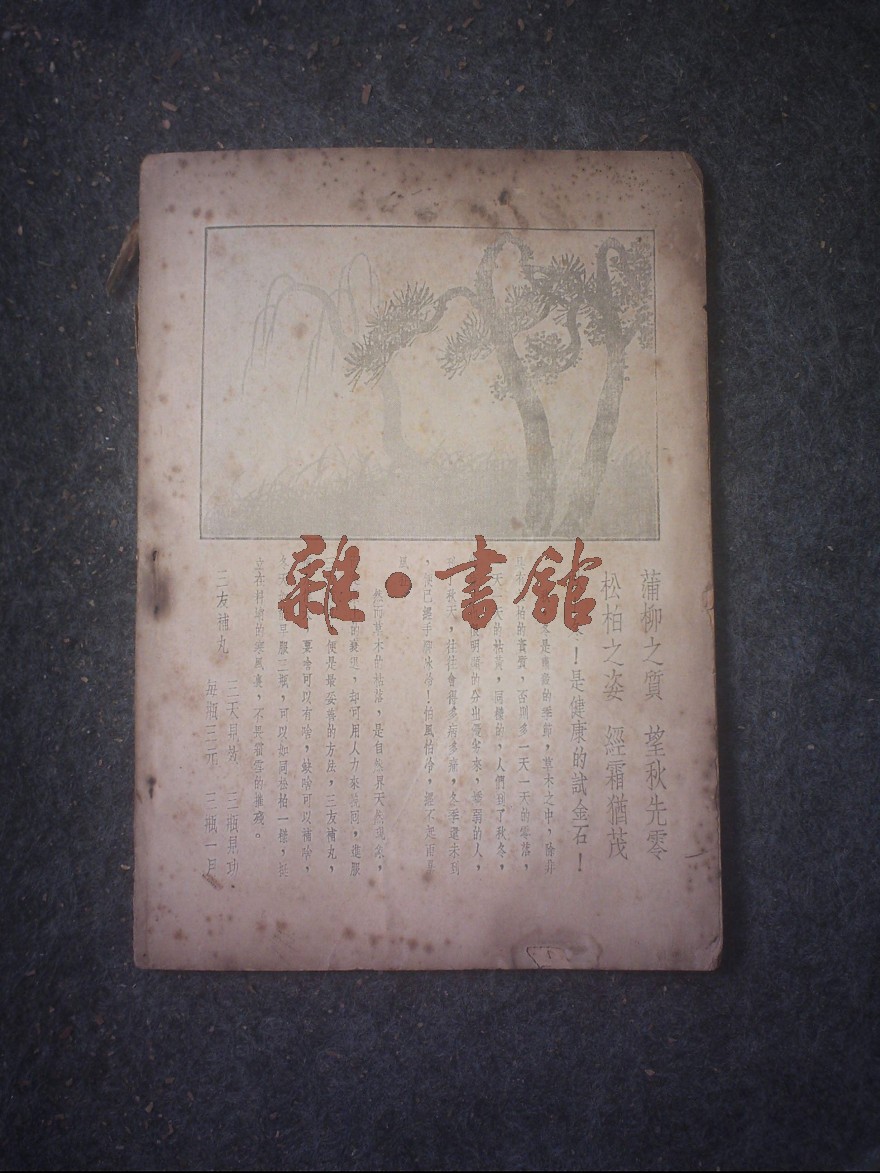 蒲柳之質　望秋先零
松柏之姿　經霜猶茂
！是健康的試金石！
冬是肅殺的季節，草木之中，除非
松柏的資質，否則多一天一天的零落，
一天一天的枯黃，同樣的，人們到了秋冬，
明顯的分出優劣來，孱弱的人，
秋天，往往會得多病多痛，冬季還未到
，便已縮手脚咪冷！怕風怕冷，經不起西北
風
然而草木的枯落，是自然界天然現象，
的衰退，却可用人力來挽回，進服
便是最妥善的方法，三友補丸，
要啥可以有啥，缺啥可以補啥，
早服三瓶，可以如同松柏一樣，挺
立在料峭的寒風裏，不畏霜雪的摧殘。
三友補丸
三天見効　三瓶見功
每瓶三元　三瓶一月
雜·書舘